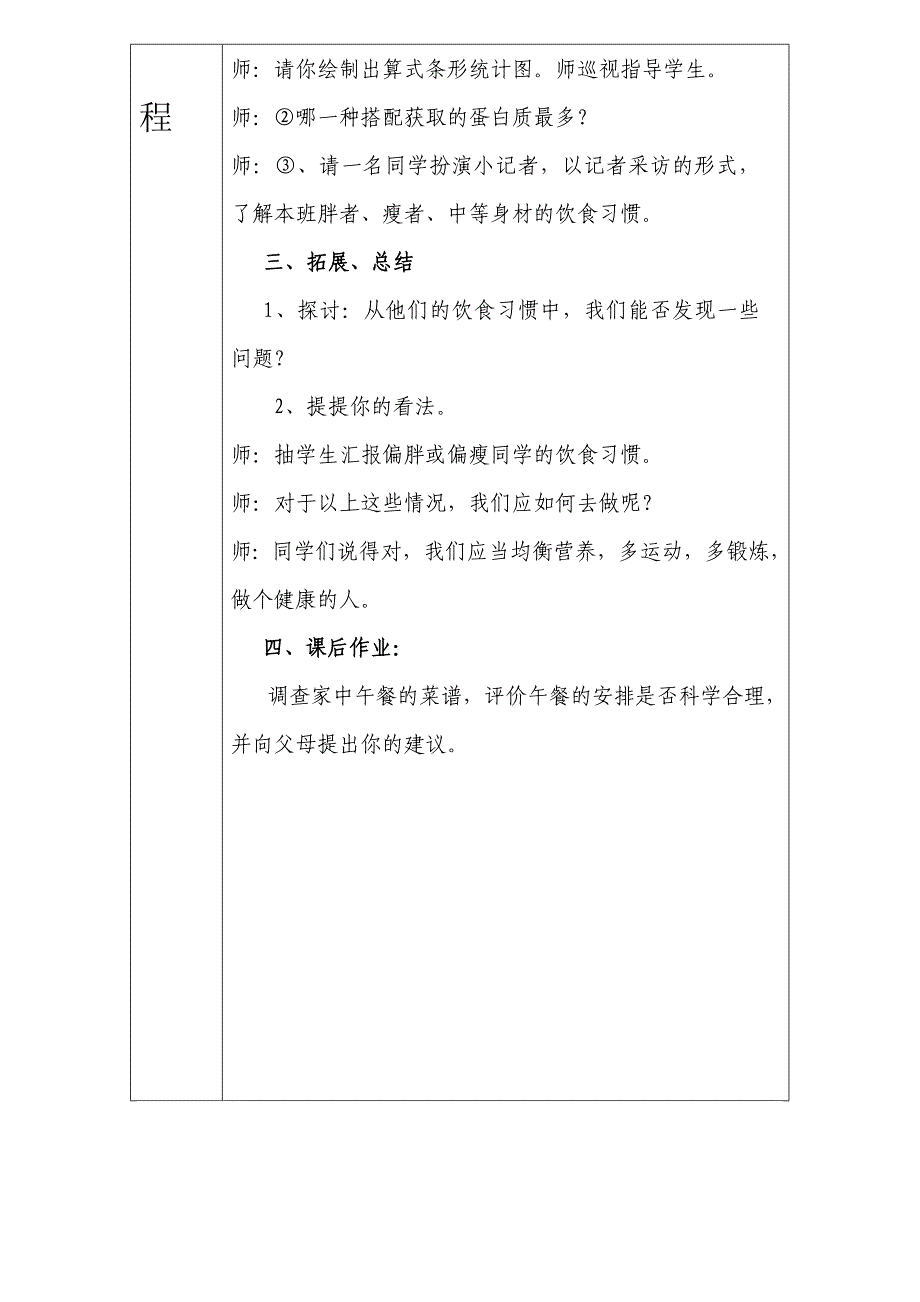 程
师：请你绘制出算式条形统计图。师巡视指导学生。
师：②哪一种搭配获取的蛋白质最多？
师：③、请一名同学扮演小记者，以记者采访的形式，
了解本班胖者、瘦者、中等身材的饮食习惯。
三、拓展、总结
1、探讨：从他们的饮食习惯中，我们能否发现一些
问题？
2、提提你的看法。
师：抽学生汇报偏胖或偏瘦同学的饮食习惯。
师：对于以上这些情况，我们应如何去做呢？
师：同学们说得对，我们应当均衡营养，多运动，多锻炼，
做个健康的人。
四、课后作业：
调查家中午餐的菜谱，评价午餐的安排是否科学合理，
并向父母提出你的建议。